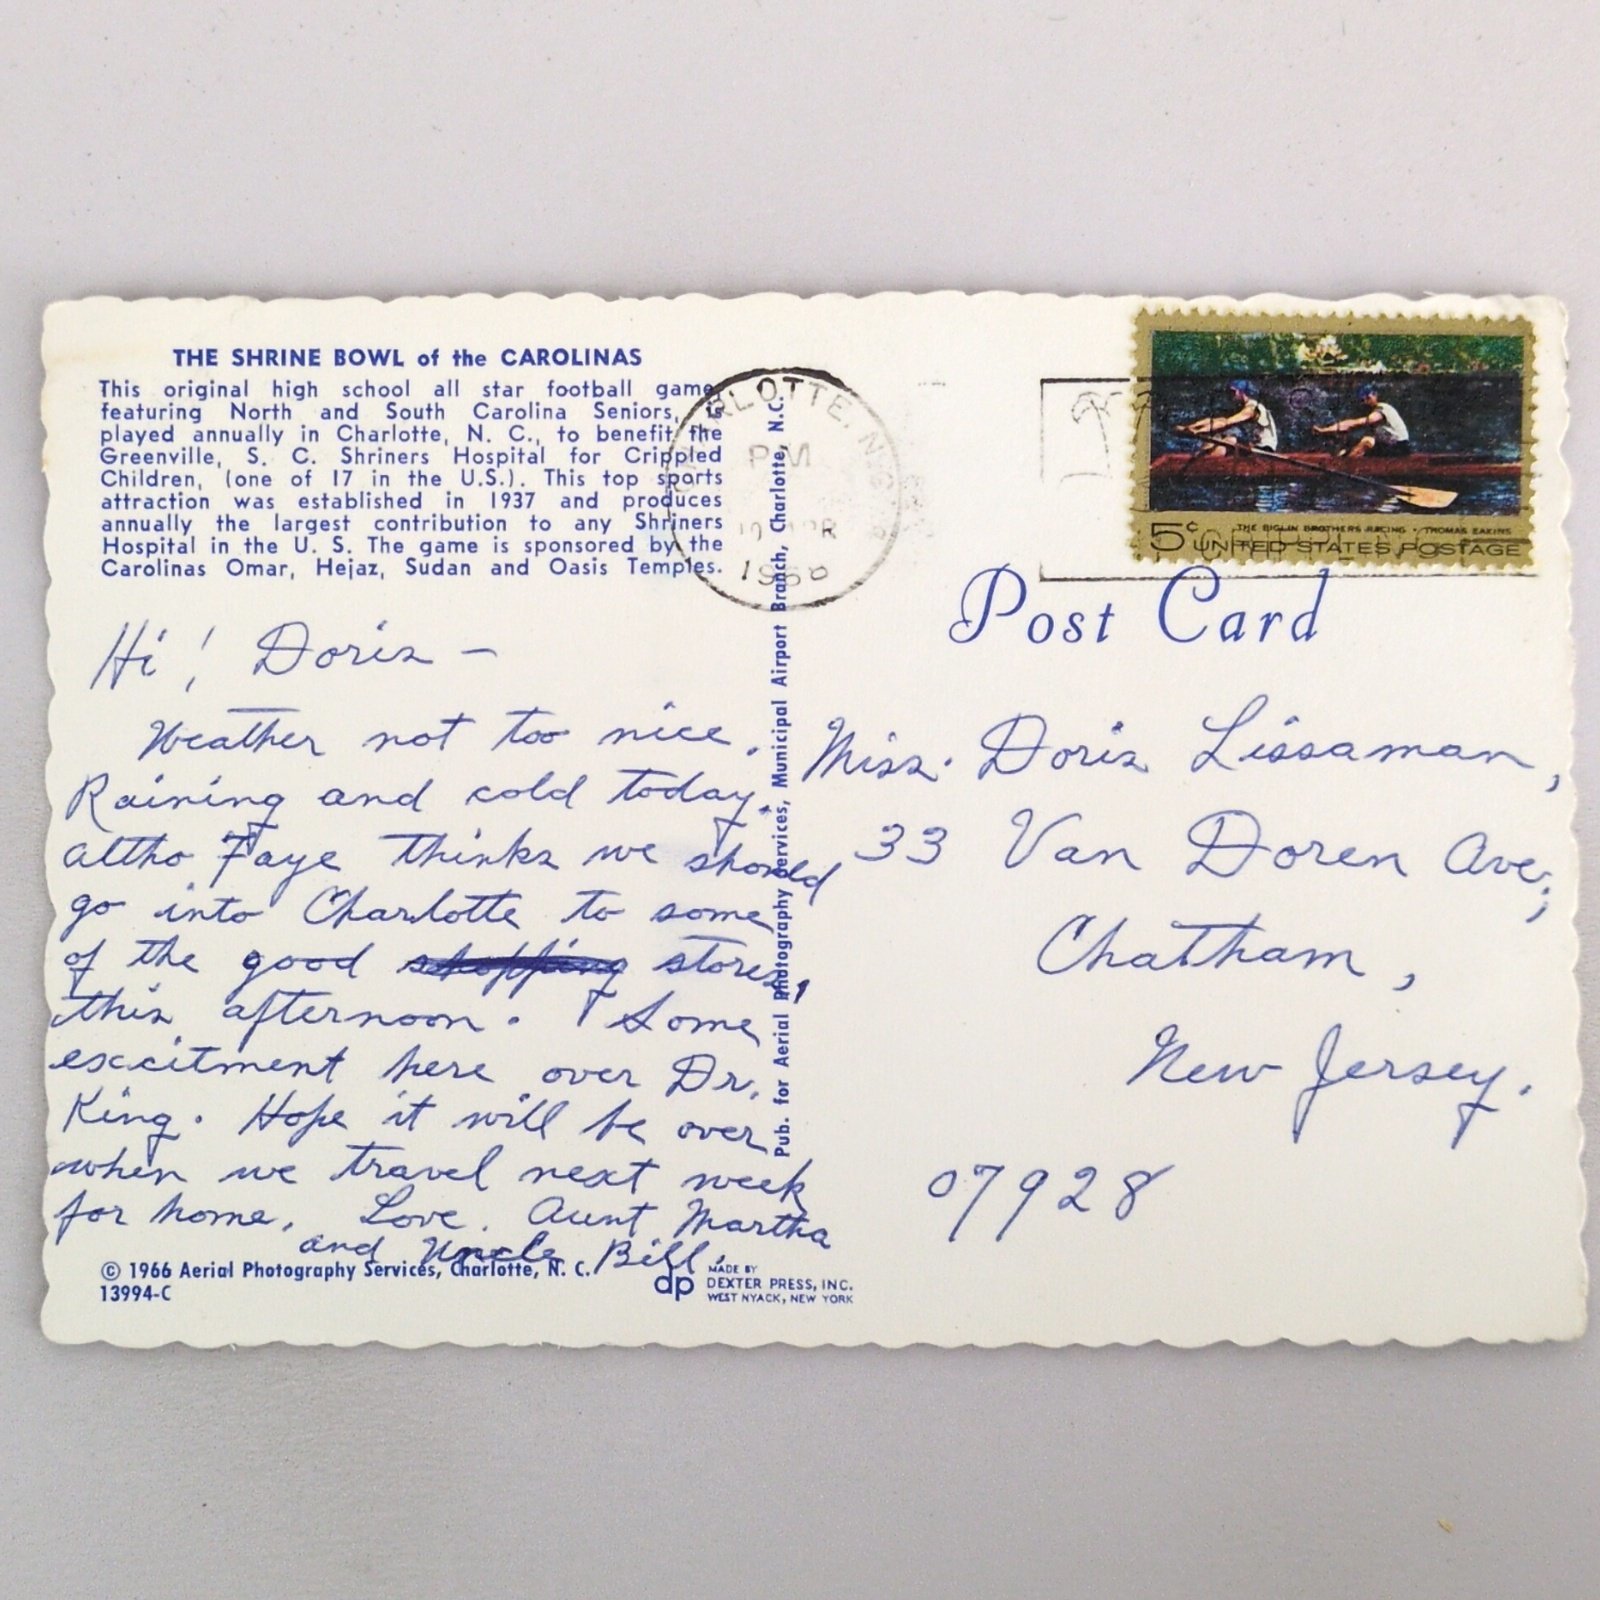 THE SHRINE BOWL of the CAROLINAS
This original high school all star football game
featuring North and South Carolina Seniors, is
played annually in Charlotte, N. C., to benefit the
Greenville, S. C. Shriners Hospital for Crippled
Children, (one of 17 in the U.S.). This top sports
attraction was established in 1937 and produces
annually the largest contribution to any Shriners
Hospital in the U. S. The game is sponsored by the
Carolinas Omar, Hejaz, Sudan and Oasis Temples.
Hi! Doris —
Weather not too nice.
Raining and cold today.
altho Faye thinks we should
go into Charlotte to some
of the good shopping stores,
this afternoon. Some
excitment here over Dr.
King. Hope it will be over
when we travel next week
for home. Love. Aunt Martha
and Uncle Bill.
© 1966 Aerial Photography Services, Charlotte, N. C.
13994-C
dp
MADE BY
DEXTER PRESS, INC.
WEST NYACK, NEW YORK
Pub. for Aerial Photography Services, Municipal Airport Branch, Charlotte, N.C.
CHARLOTTE, N.C.
PM
APR
5¢
THE BIGLIN BROTHERS RACING · THOMAS EAKINS
UNITED STATES POSTAGE
Post Card
Miss. Doris Lissaman,
33 Van Doren Ave;
Chatham,
New Jersey.
07928